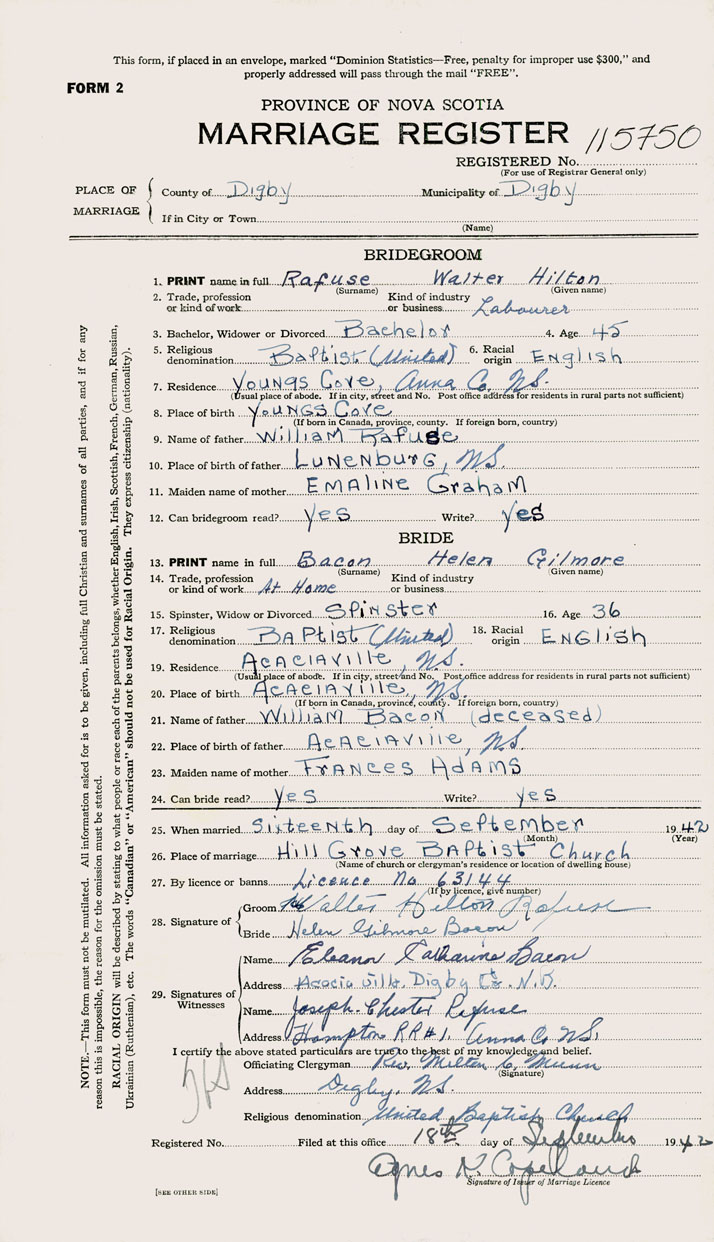 This form, if placed in an envelope, marked "Dominion Statistics—Free, penalty for improper use $300," and
properly addressed will pass through the mail "FREE".
FORM 2
PROVINCE OF NOVA SCOTIA
MARRIAGE REGISTER 115750
REGISTERED No.
(For use of Registrar General only)
PLACE OF MARRIAGE
County of Digby Municipality of Digby
If in City or Town
(Name)
BRIDEGROOM
1. PRINT name in full Rafuse Walter Hilton
(Surname) (Given name)
2. Trade, profession or kind of work Kind of industry or business Labourer
3. Bachelor, Widower or Divorced Bachelor 4. Age 45
5. Religious denomination Baptist (United) 6. Racial origin English
7. Residence Youngs Cove, Anna Co. N.S.
(Usual place of abode. If in city, street and No. Post office address for residents in rural parts not sufficient)
8. Place of birth Youngs Cove
(If born in Canada, province, county. If foreign born, country)
9. Name of father William Rafuse
10. Place of birth of father Lunenburg, N.S.
11. Maiden name of mother Emaline Graham
12. Can bridegroom read? Yes Write? Yes
BRIDE
13. PRINT name in full Bacon Helen Gilmore
(Surname) (Given name)
14. Trade, profession or kind of work At Home Kind of industry or business
15. Spinster, Widow or Divorced Spinster 16. Age 36
17. Religious denomination Baptist (United) 18. Racial origin English
19. Residence Acaciaville, N.S.
(Usual place of abode. If in city, street and No. Post office address for residents in rural parts not sufficient)
20. Place of birth Acaciaville, N.S.
(If born in Canada, province, county. If foreign born, country)
21. Name of father William Bacon (deceased)
22. Place of birth of father Acaciaville, N.S.
23. Maiden name of mother Frances Adams
24. Can bride read? Yes Write? Yes
25. When married Sixteenth day of September 1942
(Month) (Year)
26. Place of marriage Hill Grove Baptist Church
(Name of church or clergyman's residence or location of dwelling house)
27. By licence or banns Licence No 63144
(If by licence, give number)
28. Signature of
Groom Walter Hilton Rafuse
Bride Helen Gilmore Bacon
29. Signatures of Witnesses
Name Eleanor Catharine Bacon
Address Acacia ville, Digby Co. N.S.
Name Joseph Chester Rafuse
Address Hampton RR#1, Anna Co NS,
I certify the above stated particulars are true to the best of my knowledge and belief.
Officiating Clergyman Rev. Milton C. Munn
(Signature)
Address Digby, N.S.
Religious denomination United Baptist Church
Registered No. Filed at this office 18th day of September 1942
Agnes K. Copeland
Signature of Issuer of Marriage Licence
[SEE OTHER SIDE]
NOTE.—This form must not be mutilated. All information asked for is to be given, including full Christian and surnames of all parties, and if for any
reason this is impossible, the reason for the omission must be stated.
RACIAL ORIGIN will be described by stating to what people or race each of the parents belongs, whether English, Irish, Scottish, French, German, Russian,
Ukrainian (Ruthenian), etc. The words "Canadian" or "American" should not be used for Racial Origin. They express citizenship (nationality).